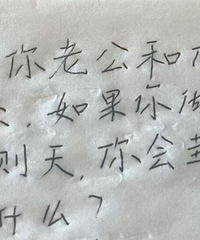 你老公和
如果你
则天,你会
什么?